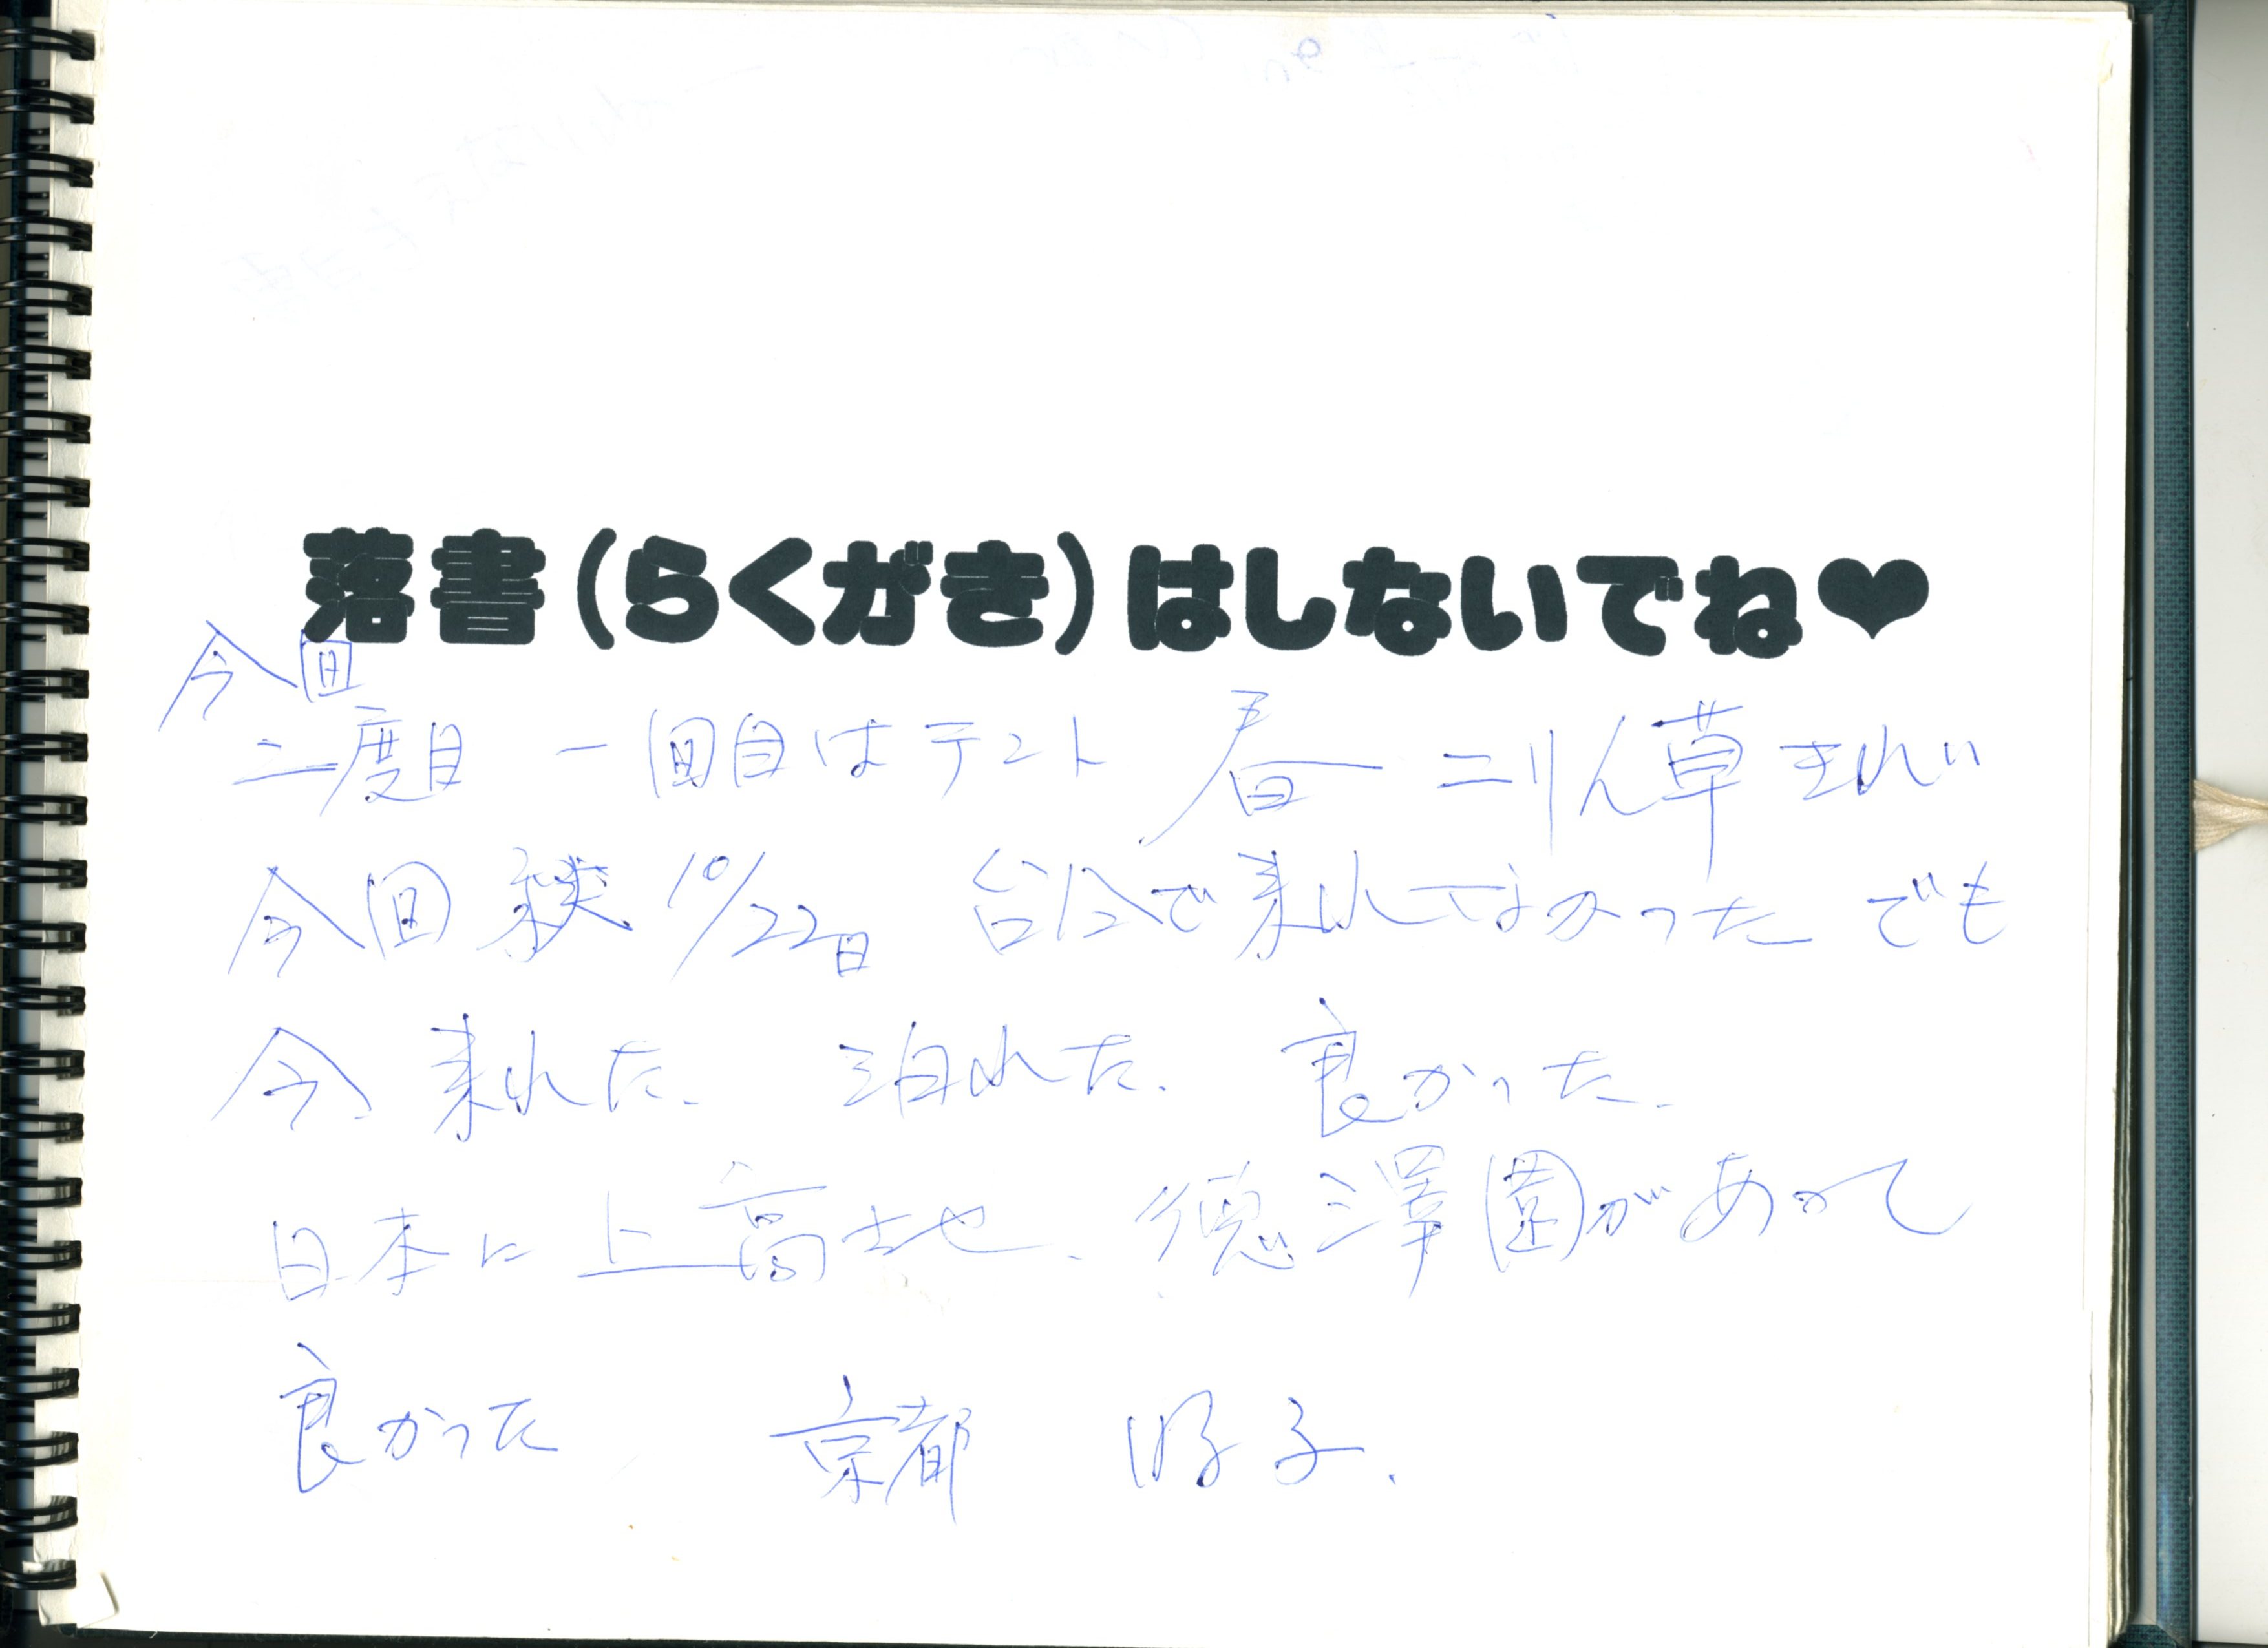 落書(らくがき)はしないでね❤
今回
二度目 一回目はテント 春 ニリん草きれい
今回 秋 10/22日 台风で来れてなかった でも
今、来れた、泊れた、良かった、
日本に上高地、徳澤園があって
良かった 京都 好子.